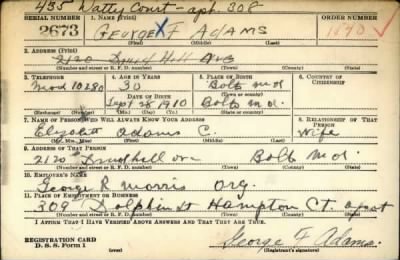 435 Watty Court - apt. 308
SERIAL NUMBER 1. NAME (Print) ORDER NUMBER
2673 GEORGE F ADAMS 1840
(First) (Middle) (Last)
2. ADDRESS (Print)
2120 Hill Ave
(Number and street or R. F. D. number) (Town) (County) (State)
3. TELEPHONE 4. AGE IN YEARS 5. PLACE OF BIRTH 6. COUNTRY OF CITIZENSHIP
Mad 10280 30 Balto Md
DATE OF BIRTH (Town or county)
Sept 28 1910 Balto Md.
(Exchange) (Number) (Mo.) (Day) (Yr.) (State or country)
7. NAME OF PERSON WHO WILL ALWAYS KNOW YOUR ADDRESS 8. RELATIONSHIP OF THAT PERSON
Elizabeth Adams C. Wife
(Mr., Mrs., Miss) (First) (Middle) (Last)
9. ADDRESS OF THAT PERSON
2120 Balto Md.
(Number and street or R. F. D. number) (Town) (County) (State)
10. EMPLOYER'S NAME
George R Morris Org.
11. PLACE OF EMPLOYMENT OR BUSINESS
309 Dolphin St Hampton Ct. apart
(Number and street or R. F. D. number) (Town) (County) (State)
I AFFIRM THAT I HAVE VERIFIED ABOVE ANSWERS AND THAT THEY ARE TRUE.
REGISTRATION CARD
D. S. S. Form 1 (over) George F Adams.
(Registrant's signature)